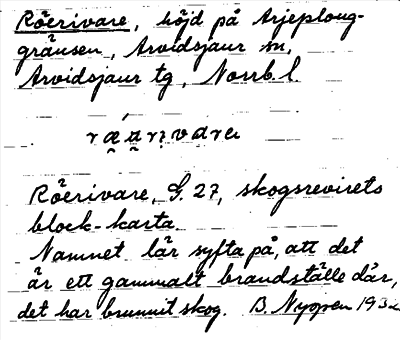 Röerivare, höjd på Arjeploug-
gränsen, Arvidsjaur sn,
Arvidsjaur tg, Norrb. l.
Röerivare, G. 27, skogsrevirets
block-karta.
Namnet lär syfta på, att det
är ett gammalt brandställe där,
det har brunnit skog. B. Nyppen